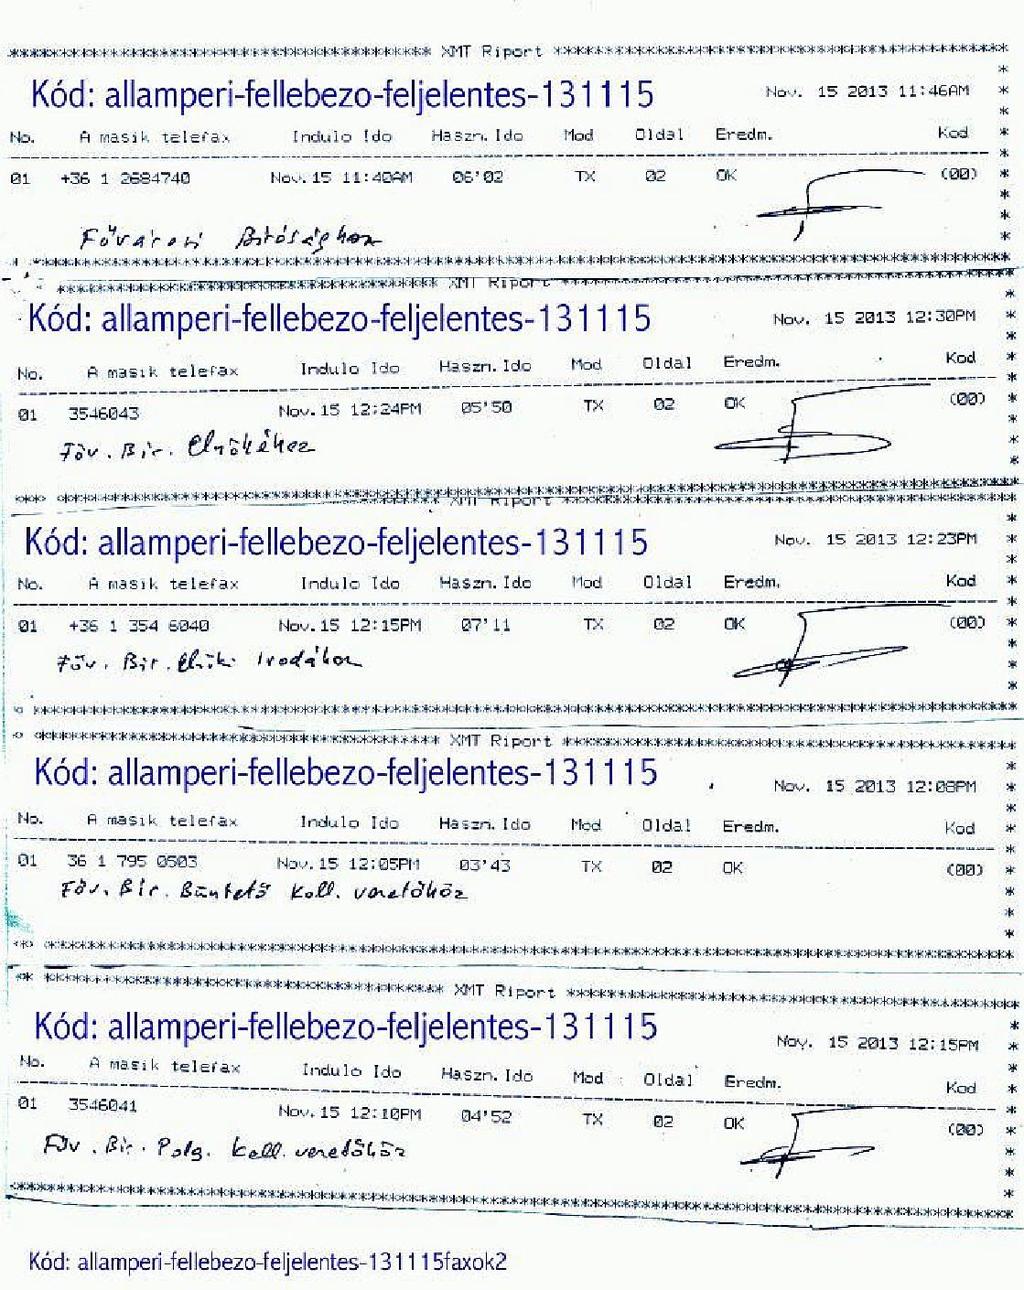 XMT Riport
Kód: allamperi-fellebezo-feljelentes-131115
Nov. 15 2013 11:46AM
No. A masik telefax Indulo Ido Haszn. Ido Mod Oldal Eredm. Kod
01 +36 1 2684740 Nov.15 11:40AM 06'02 TX 02 OK (00)
Fővárosi Bírósághoz
XMT Riport
Kód: allamperi-fellebezo-feljelentes-131115
Nov. 15 2013 12:30PM
No. A masik telefax Indulo Ido Haszn. Ido Mod Oldal Eredm. Kod
01 3546043 Nov.15 12:24PM 05'50 TX 02 OK (00)
Föv. Bir. Elnökéhez
XMT Riport
Kód: allamperi-fellebezo-feljelentes-131115
Nov. 15 2013 12:23PM
No. A masik telefax Indulo Ido Haszn. Ido Mod Oldal Eredm. Kod
01 +36 1 354 6040 Nov.15 12:15PM 07'11 TX 02 OK (00)
Föv. Bir. Elnöki Irodához
XMT Riport
Kód: allamperi-fellebezo-feljelentes-131115
Nov. 15 2013 12:08PM
No. A masik telefax Indulo Ido Haszn. Ido Mod Oldal Eredm. Kod
01 36 1 795 0503 Nov.15 12:05PM 03'43 TX 02 OK (00)
Föv. Bir. Büntető Koll. vezetőhöz
XMT Riport
Kód: allamperi-fellebezo-feljelentes-131115
Nov. 15 2013 12:15PM
No. A masik telefax Indulo Ido Haszn. Ido Mod Oldal Eredm. Kod
01 3546041 Nov.15 12:10PM 04'52 TX 02 OK (00)
Föv. Bir. Polg. koll. vezetőhöz
Kód: allamperi-fellebezo-feljelentes-131115faxok2